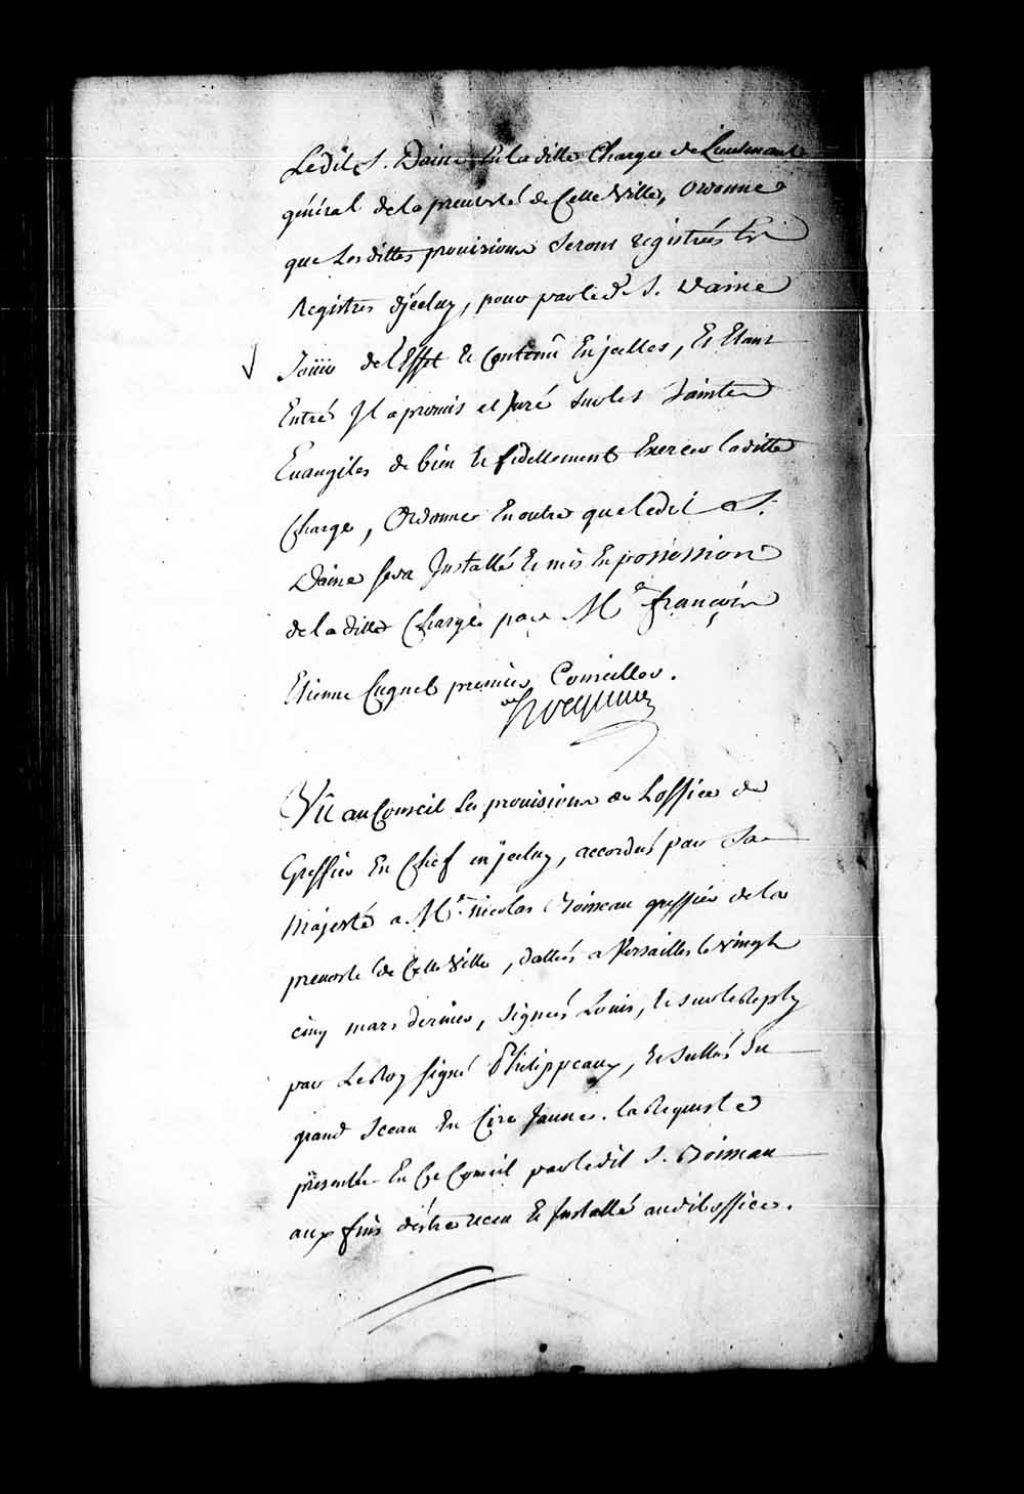 Ledit S. Daine En laditte Charge de Lieutenant
général de la prevosté de Cette Ville, ordonne
que Lesdittes provisions seront registrées Es
Registres d'jceluy, pour par led. S. Daine
Joüir de l'Effet et Contenu En jcelles, Et Etant
Entré Jl a promis et Juré sur les Saintes
Evangiles de bien et fidellement Exercer laditte
Charge, Ordonne En outre que ledit S.
Daine sera Jnstallé et mis En possession
de laditte Charge par Me. françois
Etienne Cugnet premier Conseiller.
hocquart
Vû au Conseil Les provisions de L'office de
Greffier En Chef en jceluy, accordées par Sa
Majesté a Me. Nicolas Boisseau greffier de la
prevosté de Cette Ville, dattées a Versailles le vingt
cinq mars dernier, signées Louis, Et sur le Reply
par Le Roy signé Phelippeaux, Et scellées du
grand Sceau En Cire Jaune. la Requeste
presentée En Ce Conseil par ledit S. Boisseau
aux fins d'estre receu Et Jnstallé audit office.